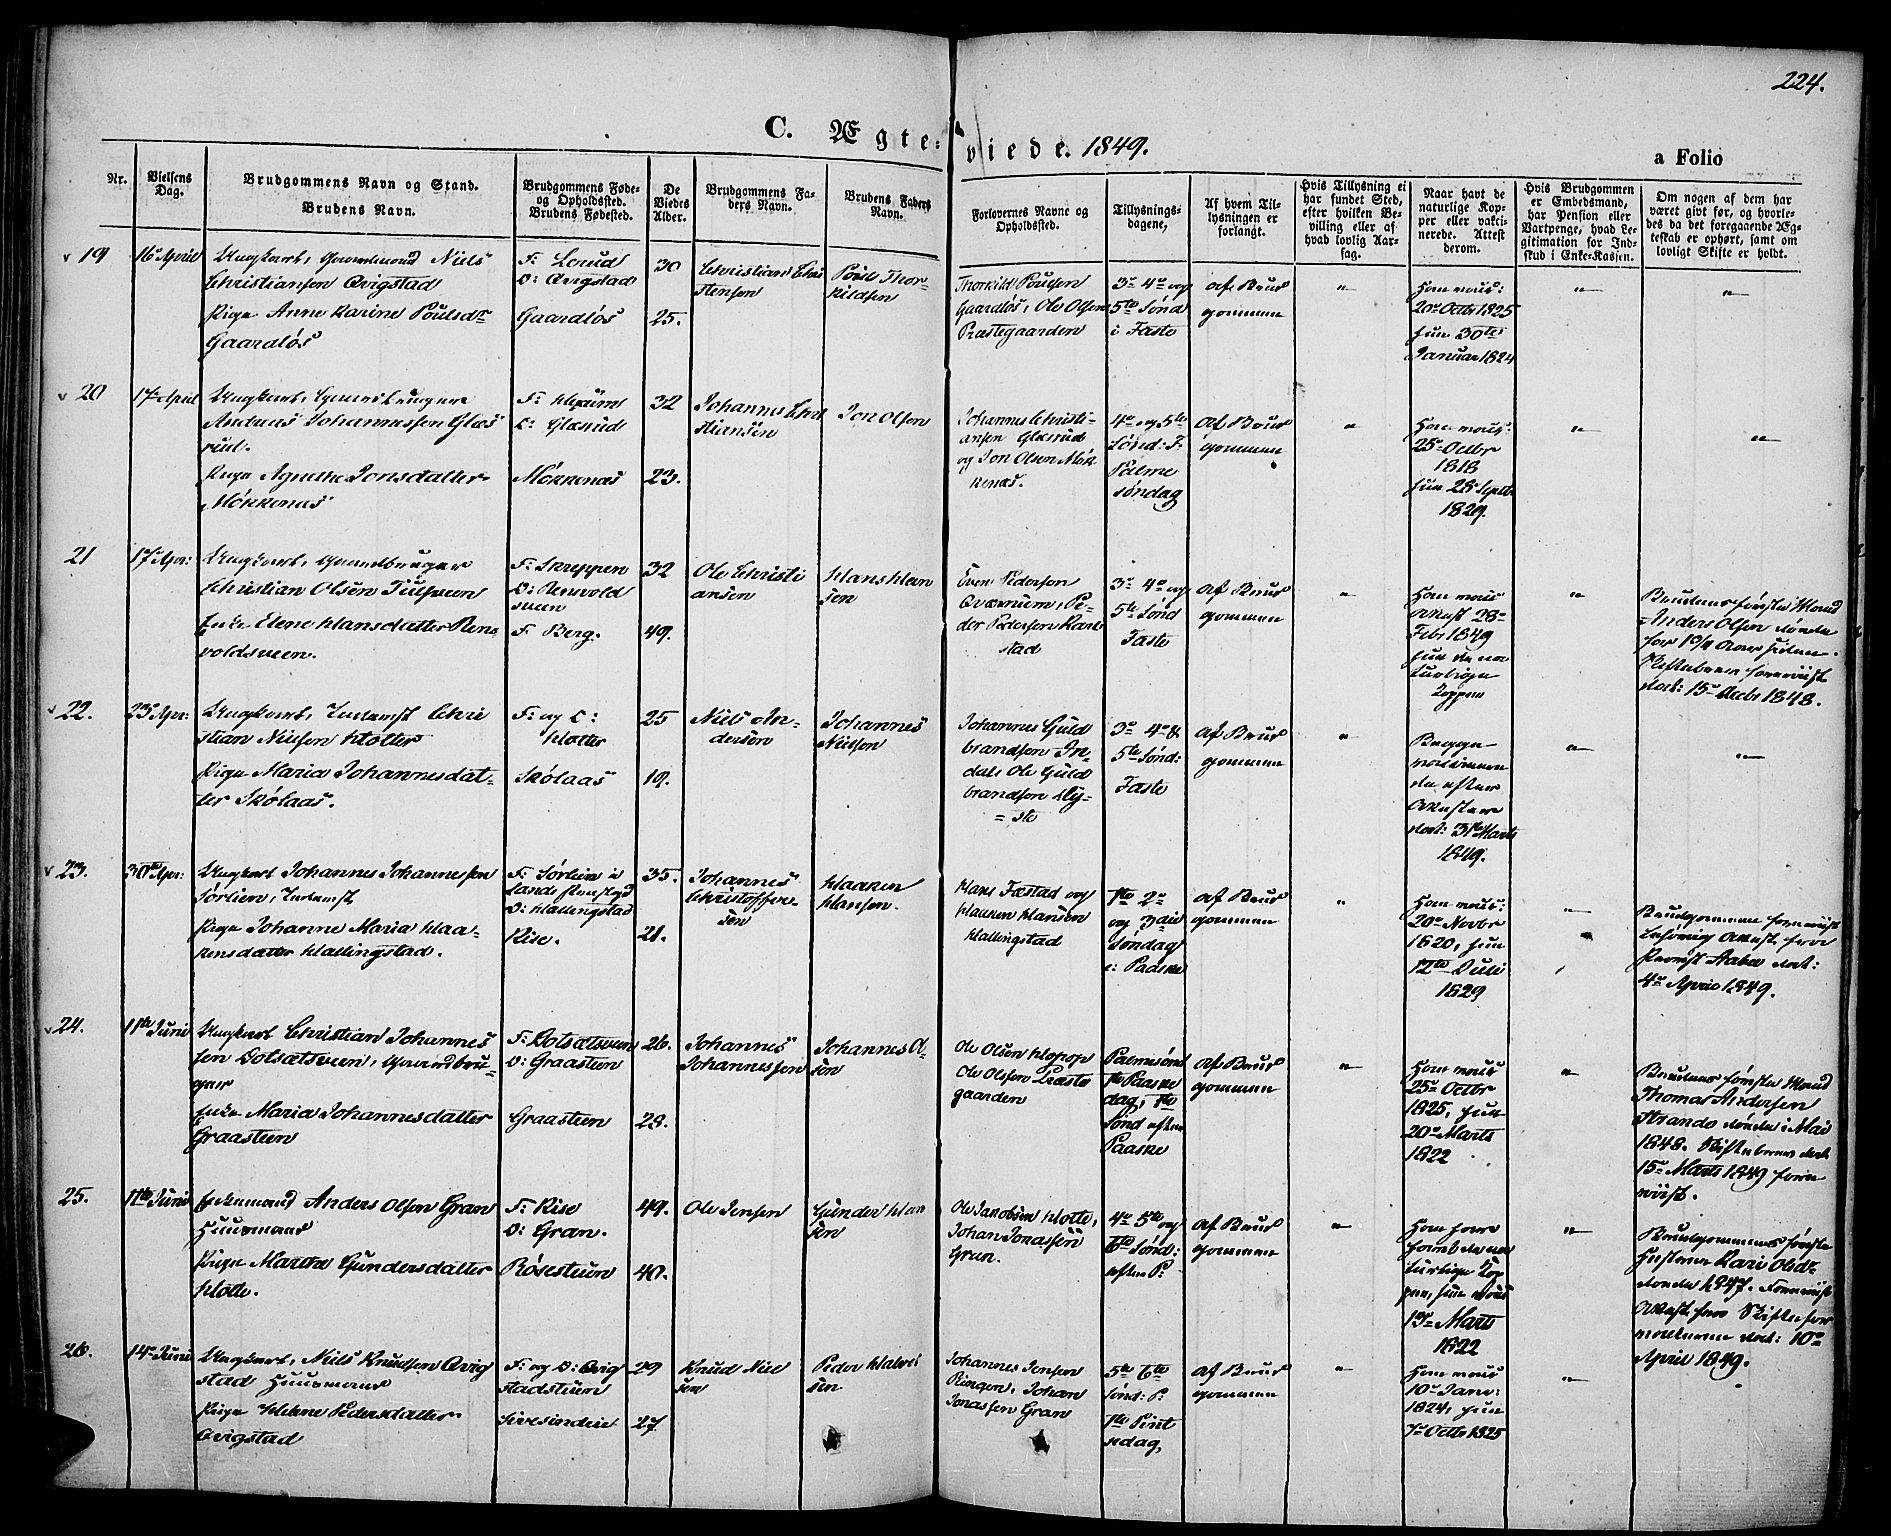 224.
C. Ægte-viede. 1849.
a Folio
Nr.
Vielsens Dag.
Brudgommens Navn og Stand.
Brudens Navn.
Brudgommens Føde- og Opholdssted.
Brudens Fødested.
De Viedes Alder.
Brudgommens Faders Navn.
Brudens Faders Navn.
Forlovernes Navne og Opholdssted.
Tillysnings-dagene,
Af hvem Tillysningen er forlangt.
Hvis Tillysning ei har fundet Sted, efter hvilken Bevilling eller af hvad lovlig Aarsag.
Naar havt de naturlige Kopper eller vaktinerede. Attest derom.
Hvis Brudgommen er Embedsmand, har Pension eller Vartpenge, hvad Legitimation for Indskud i Enke-Kassen.
Om nogen af dem har været givt før, og hvorledes da det foregaaende Ægteskab er ophørt, samt om lovligt Skifte er holdt.
19
16 April
Ungkarl, Gaardmand Niels
Christiansen Qvigstad
Pige Anne Karine Poulsdr
Gaardløs
F: Lorud
O: Qvigstad
Gaardløs
30
25.
Christian Christensen
Poul Thorkildsen
Thorkild Poulsen
Gaardløs, Ole Olsen
Præstegaarden
3die 4de og
5te Sønd
i Faste
af Brudgommen
"
Ham vacc:
20de Octbr 1825
hun 30te
Januar 1824
"
"
20
17de April
Ungkarl,
Andreas Johannessen Glæsrud.
Pige Agnethe Jonsdatter
Mökkenæs
O: Glæsrud
Mökkenæs
32
23.
Johannes Christiansen
Jon Olsen
Johannes Christiansen Glæsrud
og Jon Olsen Mökkenæs.
4de og 5te
Sønd: F.
Palmesøndag
af Brudgommen
"
Ham vacc:
25de Octbr
1818
hun 28de Septbr
1829.
"
"
21
17de Apr:
Ungkarl, Gaardbruger
Christian Olsen
Enke Elene Hansdatter Renvoldsveen.
F: Skreppen
O: Renvoldsveen
F. Berg.
32
49.
Ole Christiansen
Hans Hansen
Even Pedersen
Qværnum, Peder Pedersen
3die 4de og
5te Sønd
Faste
af Brudgommen
"
Ham vacc
Attest 28de
Febr 1849
hun de naturlige
Kopper
"
Brudens første Mand
Anders Olsen døde
for 1 3/4 Aar siden.
Skiftebrev foreviist
dat: 15de Decbr 1848.
22.
23de Apr:
Ungkarl, Inderst Christian Nielsen Hotter
Pige Maria Johannesdatter Skölaas.
F: og O:
Hotter
Skölaas
25
19.
Niels Andersen
Johannes
Nielsen
Johannes Guldbrandsen
Ole Guldbrandsen
3die 4de &
5te Sønd:
Faste
af Brudgommen
"
Begge
vaccinerede efter
Attester
dat: 31te Marts
1849.
"
"
23.
30te Apr:
Ungkarl Johannes Johannesen
Sørlien, Inderst
Pige Johanne Maria Haakensdatter Hallingstad.
F: Sørlien i
Lands Præstegjd
O: Hallingstad
Rise.
35.
21.
Johannes
Christoffersen
Haaken
Hansen.
Hans Fæstad og
Haaken Hansen
Hallingstad
1ste 2den
og 3die
Søndag
e: Paaske
af Brudgommen
"
Ham vacc:
20de Novbr
1820, hun
12te Juli
1829
"
Brudgommen foreviist
Attest fra
4de April 1849.
24.
11te Juni
Ungkarl Christian Johannessen Dotsætsveen, Gaardbruger
Enke Maria Johannesdatter
Graasteen
F: Dotsætsveen
O: Graasteen
Graasteen
26.
23.
Johannes
Johannessen
Johannes Olsen
Ole Olsen
Ole Olsen Præstegaarden
Palmesønd
Paaskedag, 1ste
Sønd efter
Paaske
af Brudgommen
"
Ham vacc:
25de Octbr
1825, hun
20de Marts
1822
"
Brudens første Mand
Thomas Andersen
Strande døde i Mai
1848. Skiftebrev dat
15de Marts 1849 foreviist.
25.
11te Juni
Enkemand Anders Olsen Gran
Huusmand
Pige Marthe Gundersdatter
Hotte.
F: Rise
O: Gran.
Røsesteen
49.
40.
Ole Jensen
Gunder Hansen
Ole Jacobsen Hotte,
Johan Jonassen
Gran.
4de 5te og
6te Sønd:
efter P:
af Brudgommen
"
Ham have
havt de naturlige Kopper, hun vacc
13de Marts
1822
"
Brudgommens første
Hustrue Kari Olsdr
døde 1847. Foreviist
Attest fra Skifteforvalteren dat: 10de
April 1849.
26.
14de Juni
Ungkarl, Niels Knudsen Qvigstad Huusmand
Pige Helene Pedersdatter
Qvigstad
F: og O: Qvigstadsteen
29
27
Knud Nielsen
Peder Halvorsen
Johannes Jensen
Ringen, Johan
Jonassen Gran
5te 6te
Sønd: P:
1ste Pintsedag,
af Brudgommen
"
Ham vacc
10de Janr:
1824, hun
7de Octbr 1825
"